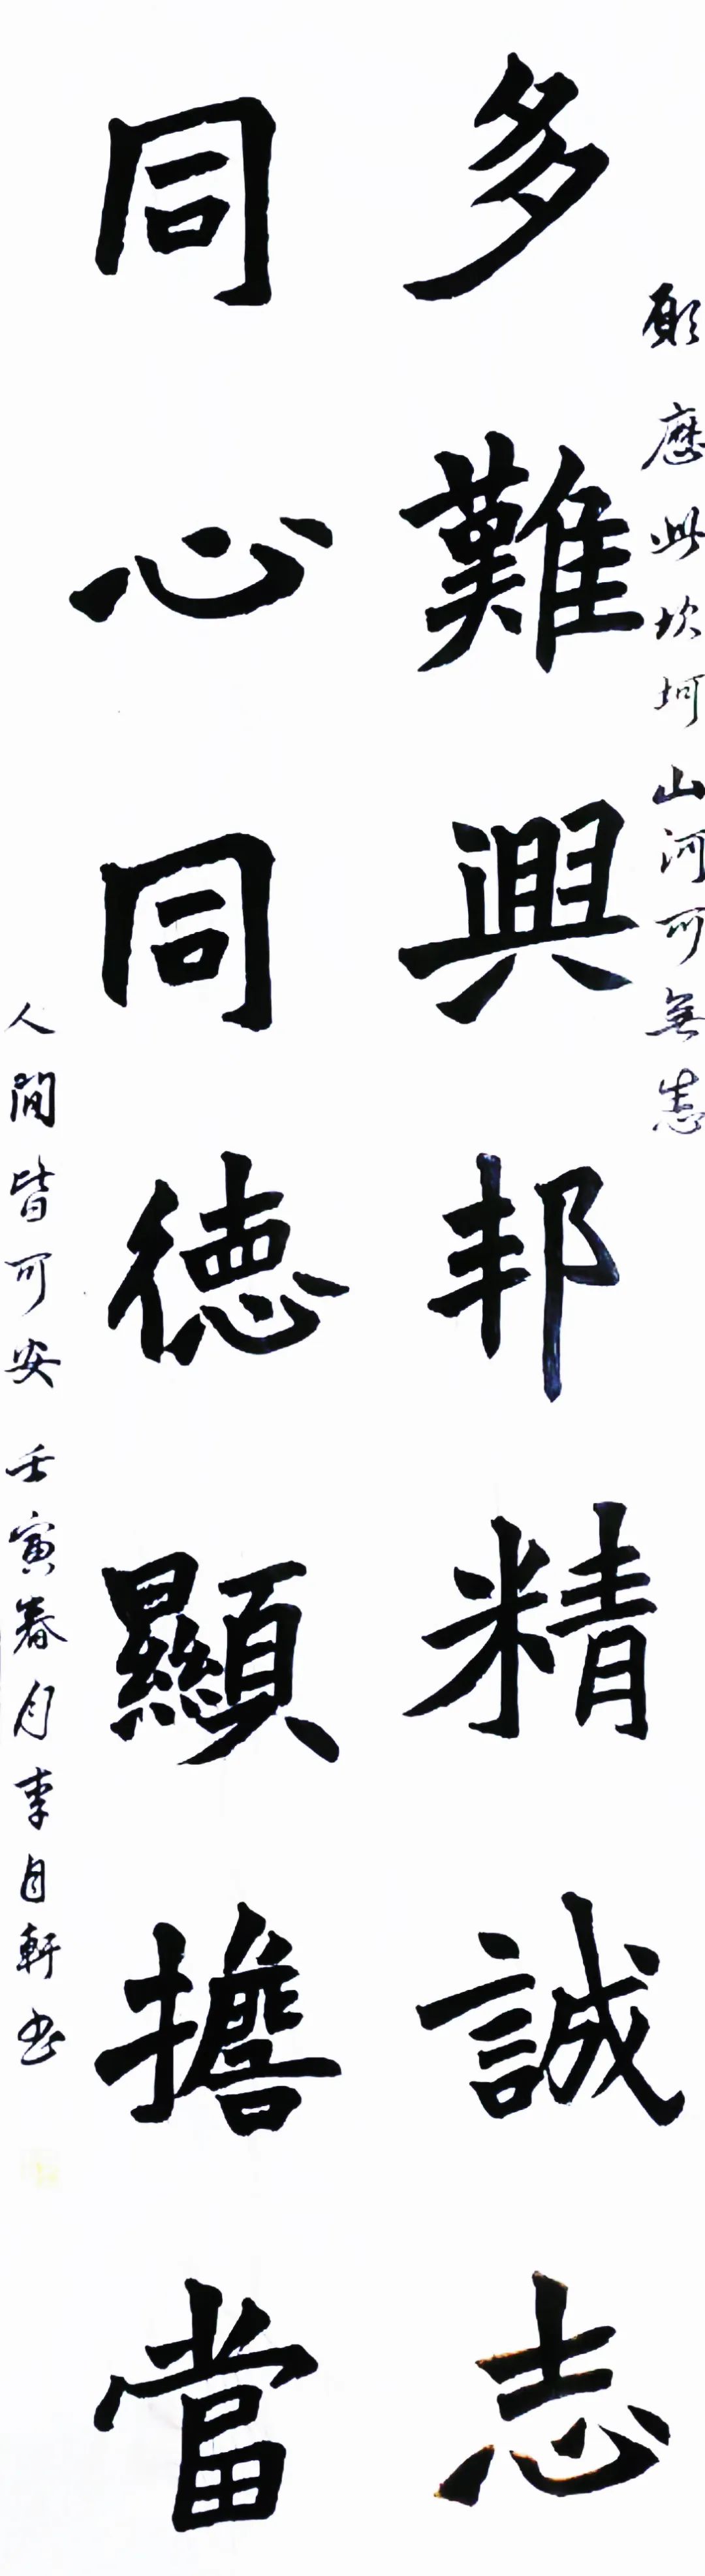 願歷此坎坷山河可無恙
多難興邦精誠志
同心同德顯擔當
人間皆可安 壬寅春月李自軒书